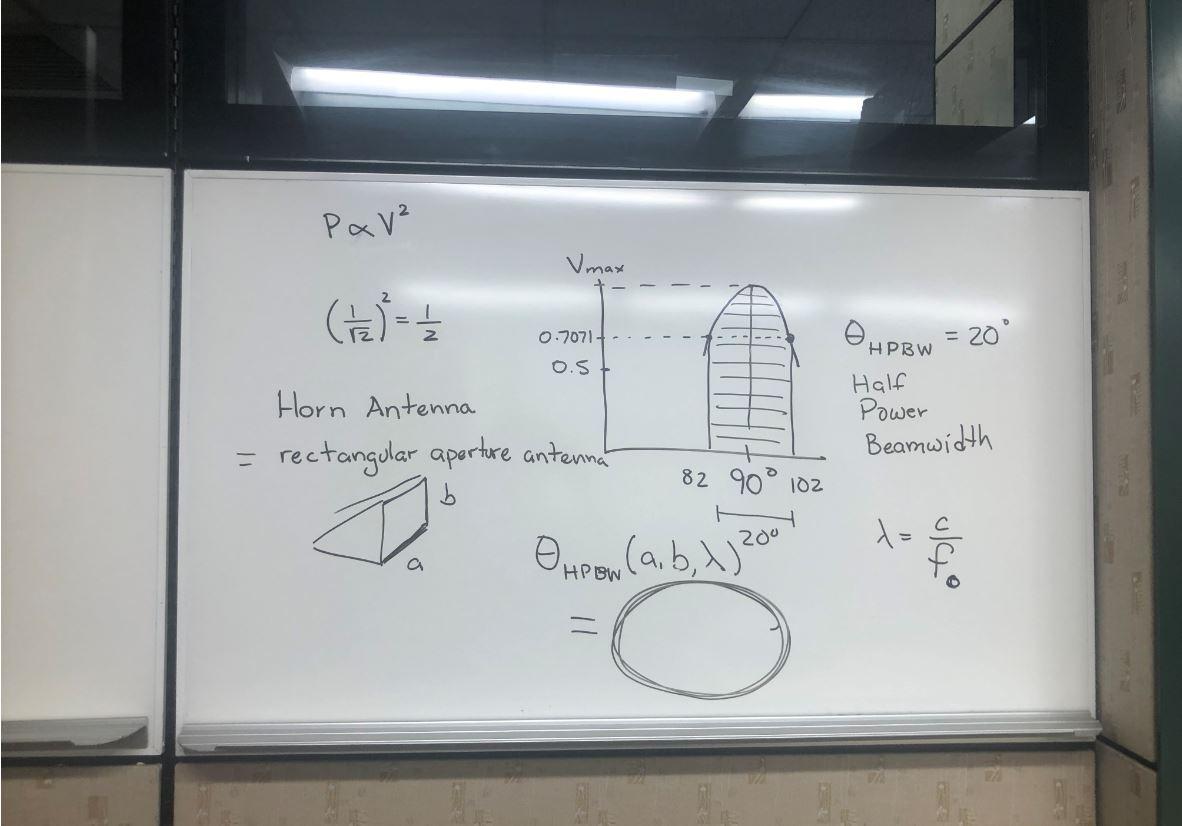 P ∝ V²
(1/√2)² = 1/2
Horn Antenna
= rectangular aperture antenna
b
a
Vmax
0.7071
0.5
82 90° 102
20°
θHPBW = 20°
Half
Power
Beamwidth
θHPBW (a, b, λ)
=
λ = c/f₀